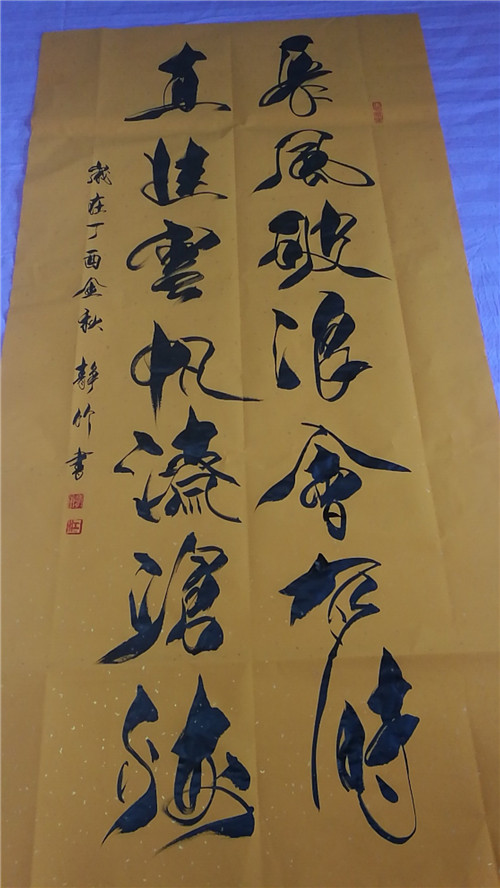 長風破浪會有時
直挂雲帆濟滄海
歲在丁酉金秋 靜竹書